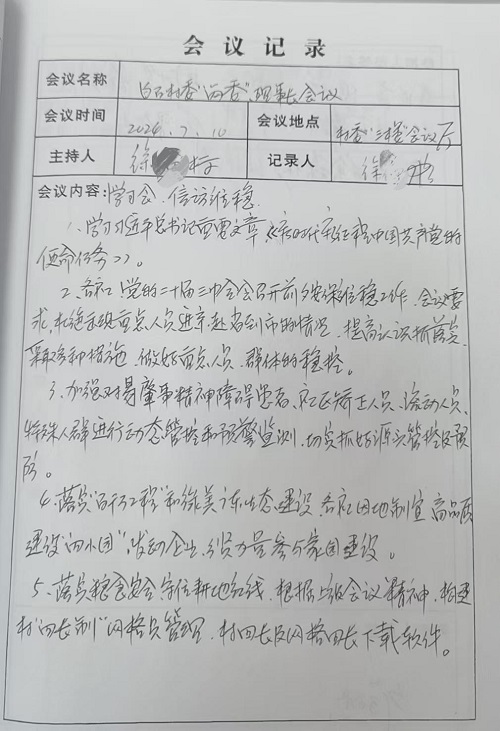 会议记录
会议名称 村委"两委"理事长会议
会议时间 2024.7.10 会议地点 村委"三楼"会议厅
主持人 徐 记录人 徐
会议内容:学习会、信访维稳
1、学习习近平总书记重要文章《新时代新征程中国共产党的
使命任务》。
2、各社党的二十届三中全会召开前夕安保维稳工作,会议要
求,杜绝出现重点人员进京赴省到市的情况,提高认识抓落实,
采取多种措施,做好重点人员、群体的稳控。
3、加强对易肇事精神障碍患者、社区矫正人员、流动人员、
特殊人群进行动态管控和预警监测,切实抓好源头管控及预
防。
4、落实"百千万工程"和绿美广东生态建设,各社因地制宜,高品质
建设"四小园",发动企业、乡贤力量参与家园建设。
5、落实粮食安全守住耕地红线,根据上级会议精神,构建
村"田长制"网格员管理,村田长及网格田长下载软件。